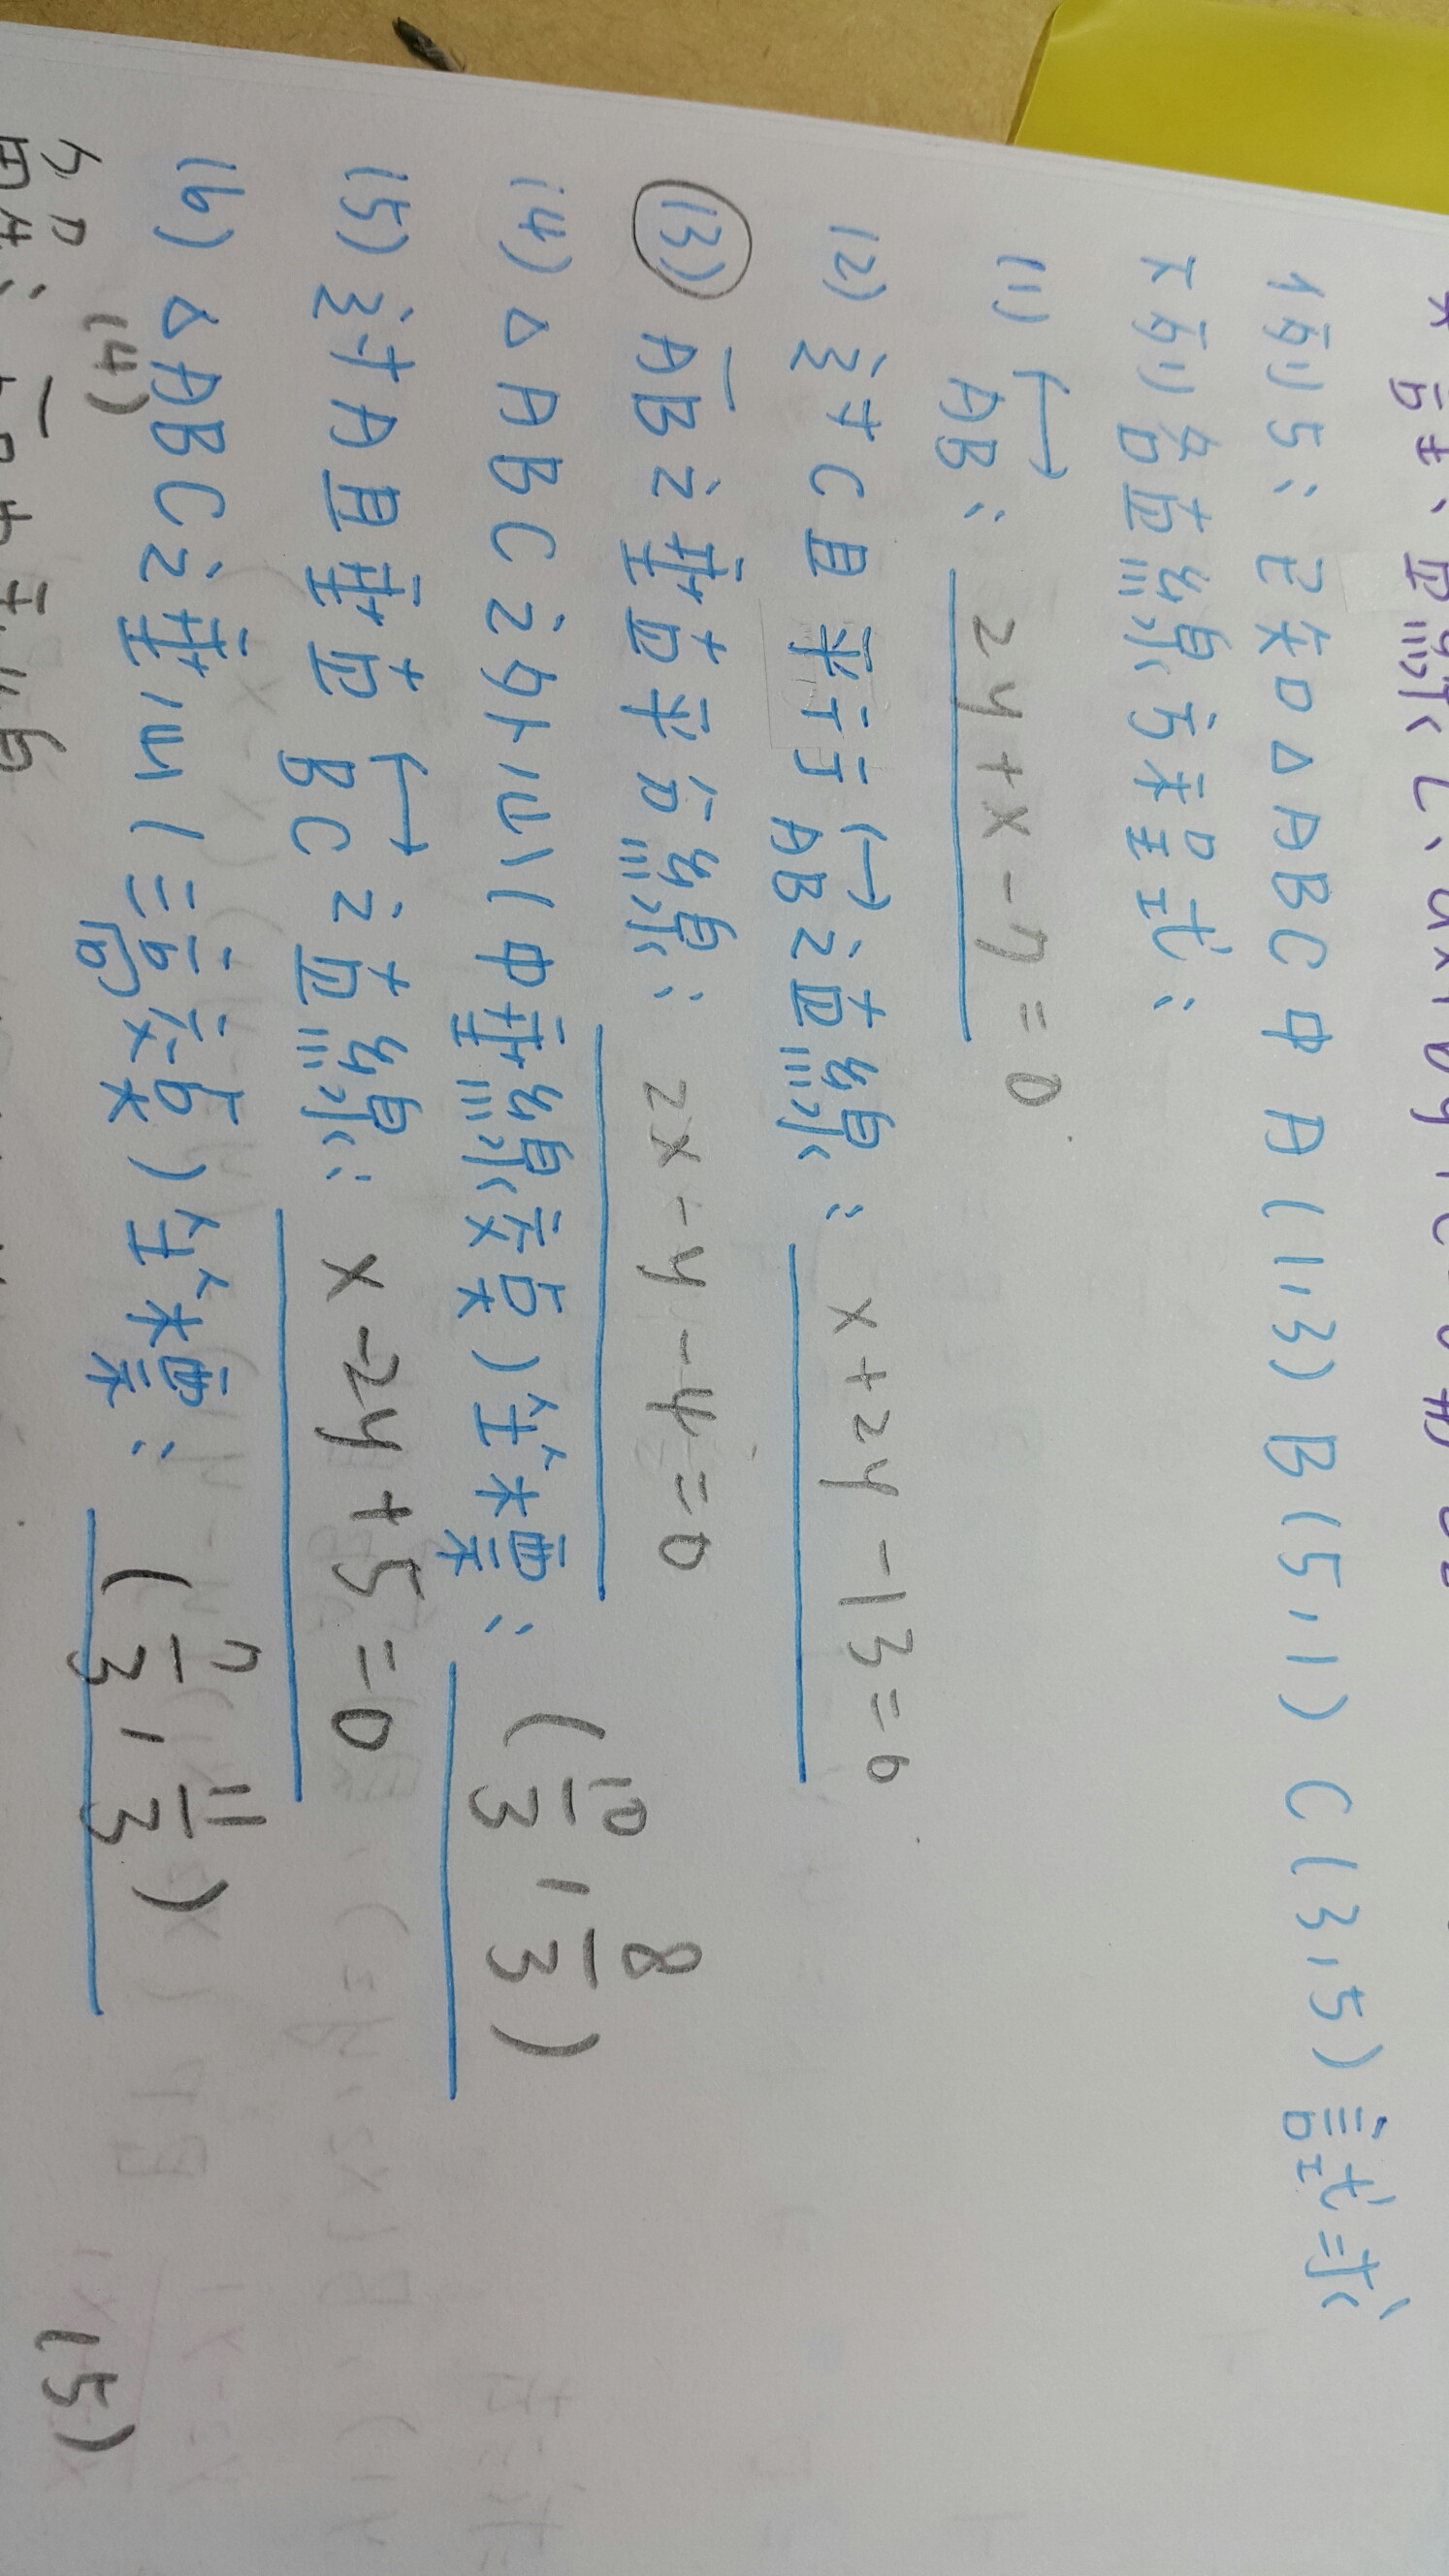 例5:已知△ABC中A(1,3) B(5,1) C(3,5)試求
下列各直線方程式:
(1) AB: 2y+x-7=0
(2) 過C且平行于AB之直線: x+2y-13=0
(3) AB之垂直平分線: 2x-y-4=0
(4) △ABC之外心(中垂線交點)坐標: (10/3, 8/3)
(5) 過A且垂直BC之直線: x-2y+5=0
(6) △ABC之垂心(三高交點)坐標: (7/3, 11/3)
(4)
(6)
(5)